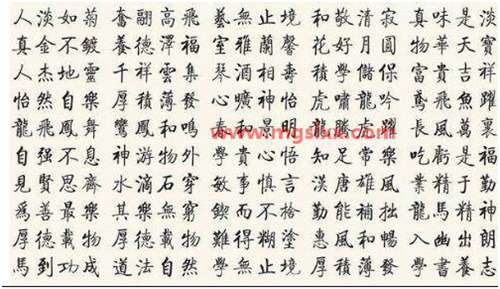 人淡如菊 奮翮高飛 藝無止境 和敬清寂 真味是淡
真金不鍍 養德澤福 室雅蘭馨 花好月圓 物華天寶
人杰地靈 千祥雲集 琴酒 壽 積學儲 富貴吉祥
怡然自樂 厚積薄發 心曠神怡 虎嘯龍吟 鳶飛魚躍
龍飛鳳舞 鸞鳳和鳴 春和景明 龍騰虎躍 長風萬裏
自强不息 神游物外 學貴心悟 知足常樂 吃虧是福
見賢思齊 水滴石穿 敏事慎言 漢唐雄風 業精于勤
爲善最樂 其樂無窮 鍥而不捨 勤能補拙 龍馬精神
厚德載物 厚德載物 難得糊塗 惠風和暢 入幽出朗
馬到功成 道法自然 學無止境 厚積薄發 學書養志